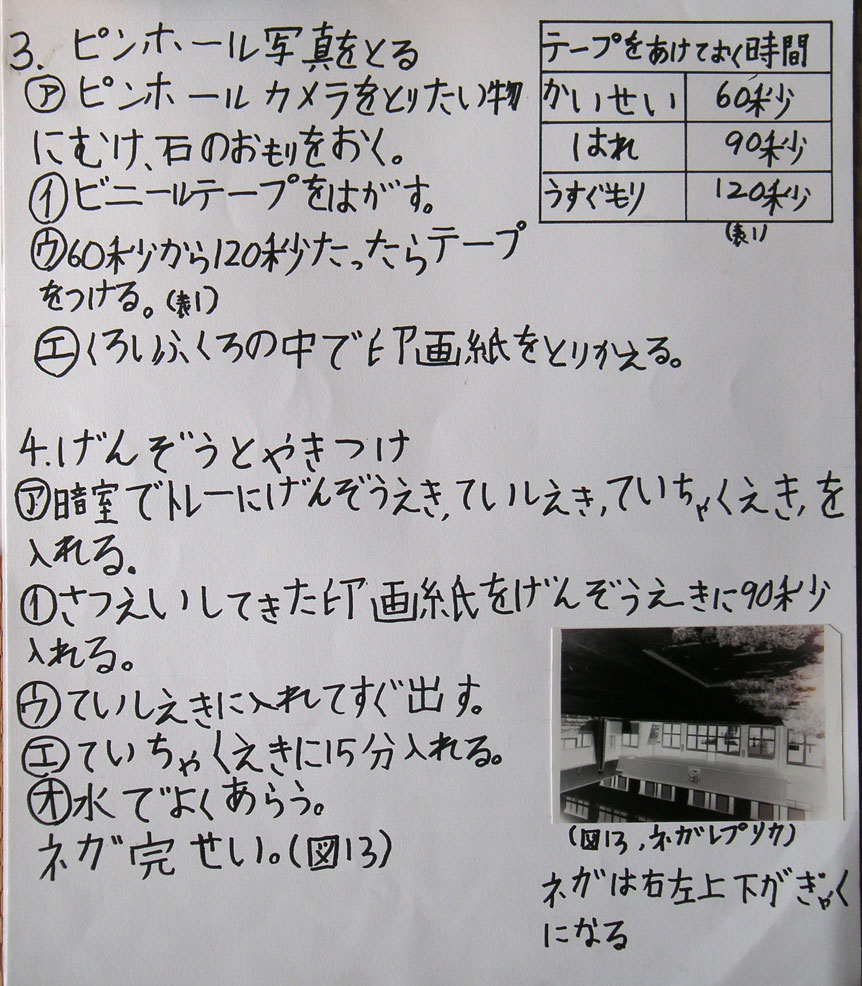 3. ピンホール写真をとる
㋐ピンホールカメラをとりたい物
にむけ、石のおもりをおく。
㋑ビニールテープをはがす。
㋒60秒から120秒たったらテープ
をつける。(表1)
㋓くろいふくろの中で印画紙をとりかえる。
テープをあけておく時間
かいせい 60秒
はれ 90秒
うすぐもり 120秒
(表1)
4.げんぞうとやきつけ
㋐暗室でトレーにげんぞうえき,ていしえき,ていちゃくえき,を
入れる.
㋑さつえいしてきた印画紙をげんぞうえきに90秒
入れる。
㋒ていしえきに入れてすぐ出す。
㋓ていちゃくえきに15分入れる。
㋔水でよくあらう。
ネガ完せい。(図13)
(図13,ネガレプリカ)
ネガは右左上下がぎゃく
になる